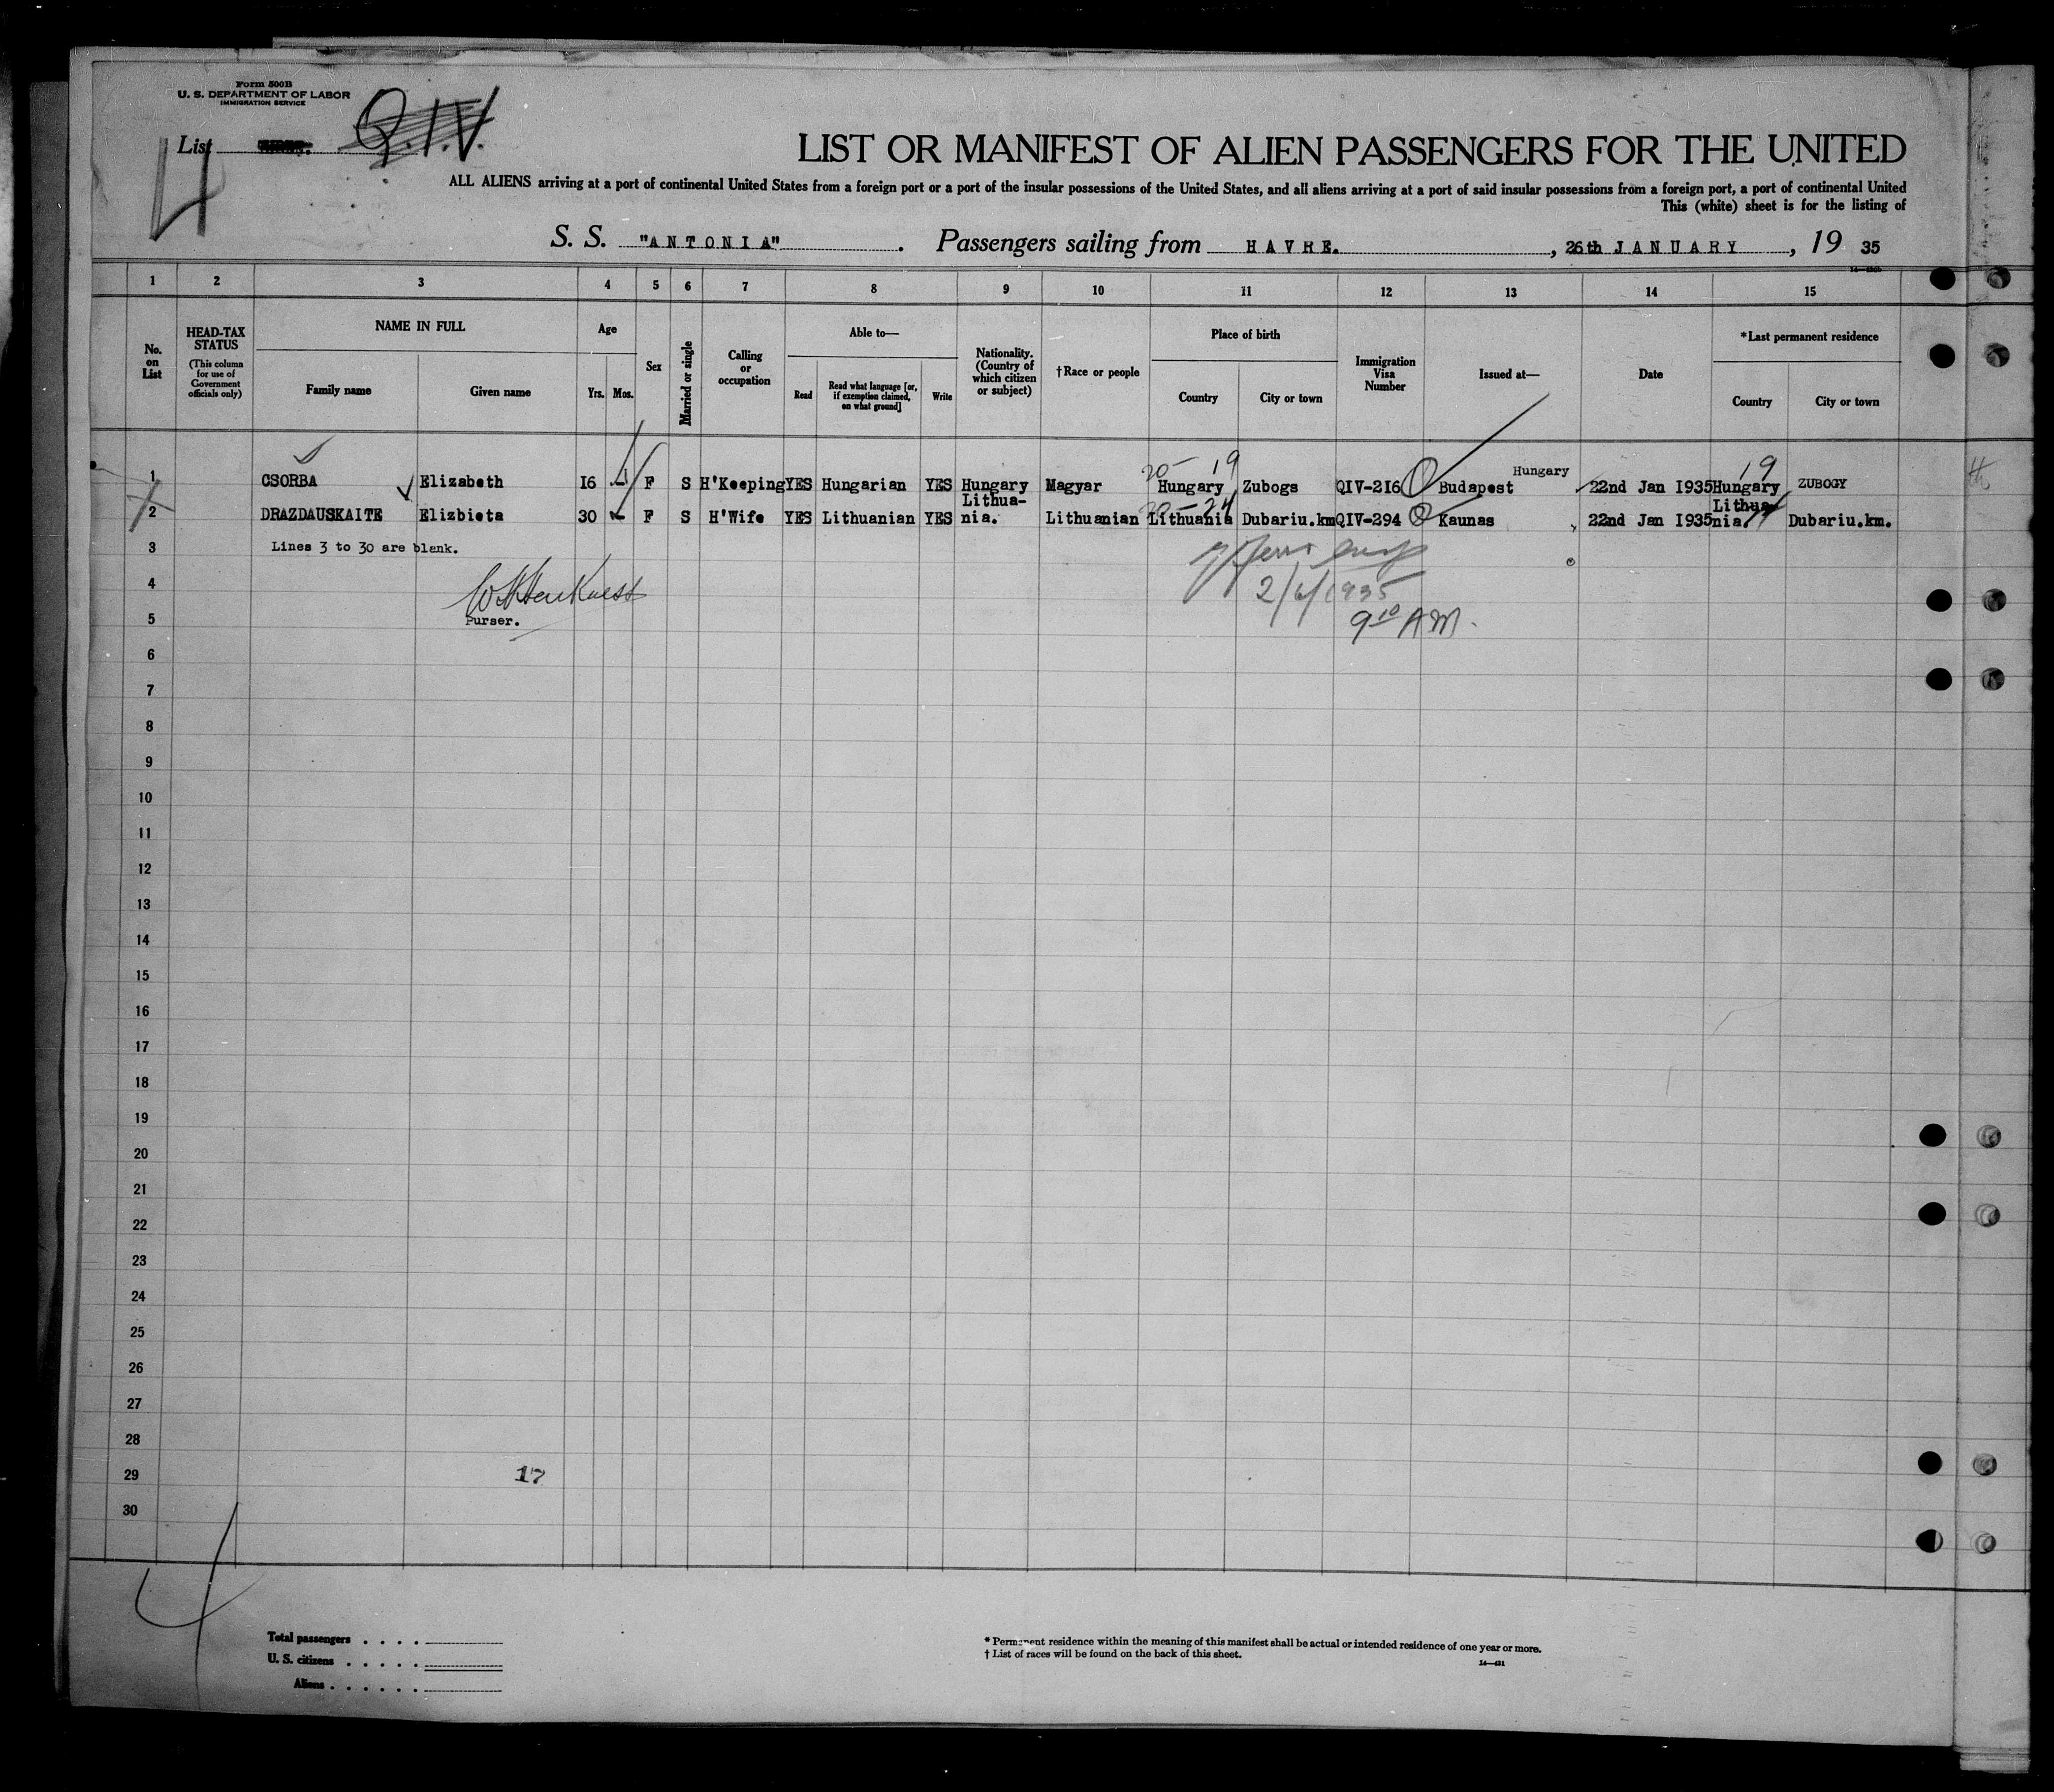 Form 500B
U. S. DEPARTMENT OF LABOR
IMMIGRATION SERVICE
List Q.I.V.
4
LIST OR MANIFEST OF ALIEN PASSENGERS FOR THE UNITED
ALL ALIENS arriving at a port of continental United States from a foreign port or a port of the insular possessions of the United States, and all aliens arriving at a port of said insular possessions from a foreign port, a port of continental United
This (white) sheet is for the listing of
S. S. "ANTONIA". Passengers sailing from HAVRE., 26th JANUARY, 19 35
1 2 3 4 5 6 7 8 9 10 11 12 13 14 15
No. on List
HEAD-TAX STATUS (This column for use of Government officials only)
NAME IN FULL
Family name Given name
Age
Yrs. Mos.
Sex
Married or single
Calling or occupation
Able to—
Read Read what language [or, if exemption claimed, on what ground] Write
Nationality. (Country of which citizen or subject)
†Race or people
Place of birth
Country City or town
Immigration Visa Number
Issued at—
Date
*Last permanent residence
Country City or town
20- 19 19
1 CSORBA Elizabeth 16 F S H'Keeping YES Hungarian YES Hungary Magyar Hungary Zubogs QIV-216 Budapest Hungary 22nd Jan 1935 Hungary ZUBOGY
2 DRAZDAUSKAITE Elizbieta 30 F S H'Wife YES Lithuanian YES Lithua-nia. Lithuanian Lithuania Dubariu.km QIV-294 Kaunas 22nd Jan 1935 Lithua-nia. Dubariu.km.
3 Lines 3 to 30 are blank.
4 2/6/1935
5 Purser. 9 10 AM.
6
7
8
9
10
11
12
13
14
15
16
17
18
19
20
21
22
23
24
25
26
27
28
29 17
30
4
Total passengers . . . .
U. S. citizens . . . . .
Aliens . . . . . .
* Permanent residence within the meaning of this manifest shall be actual or intended residence of one year or more.
† List of races will be found on the back of this sheet.